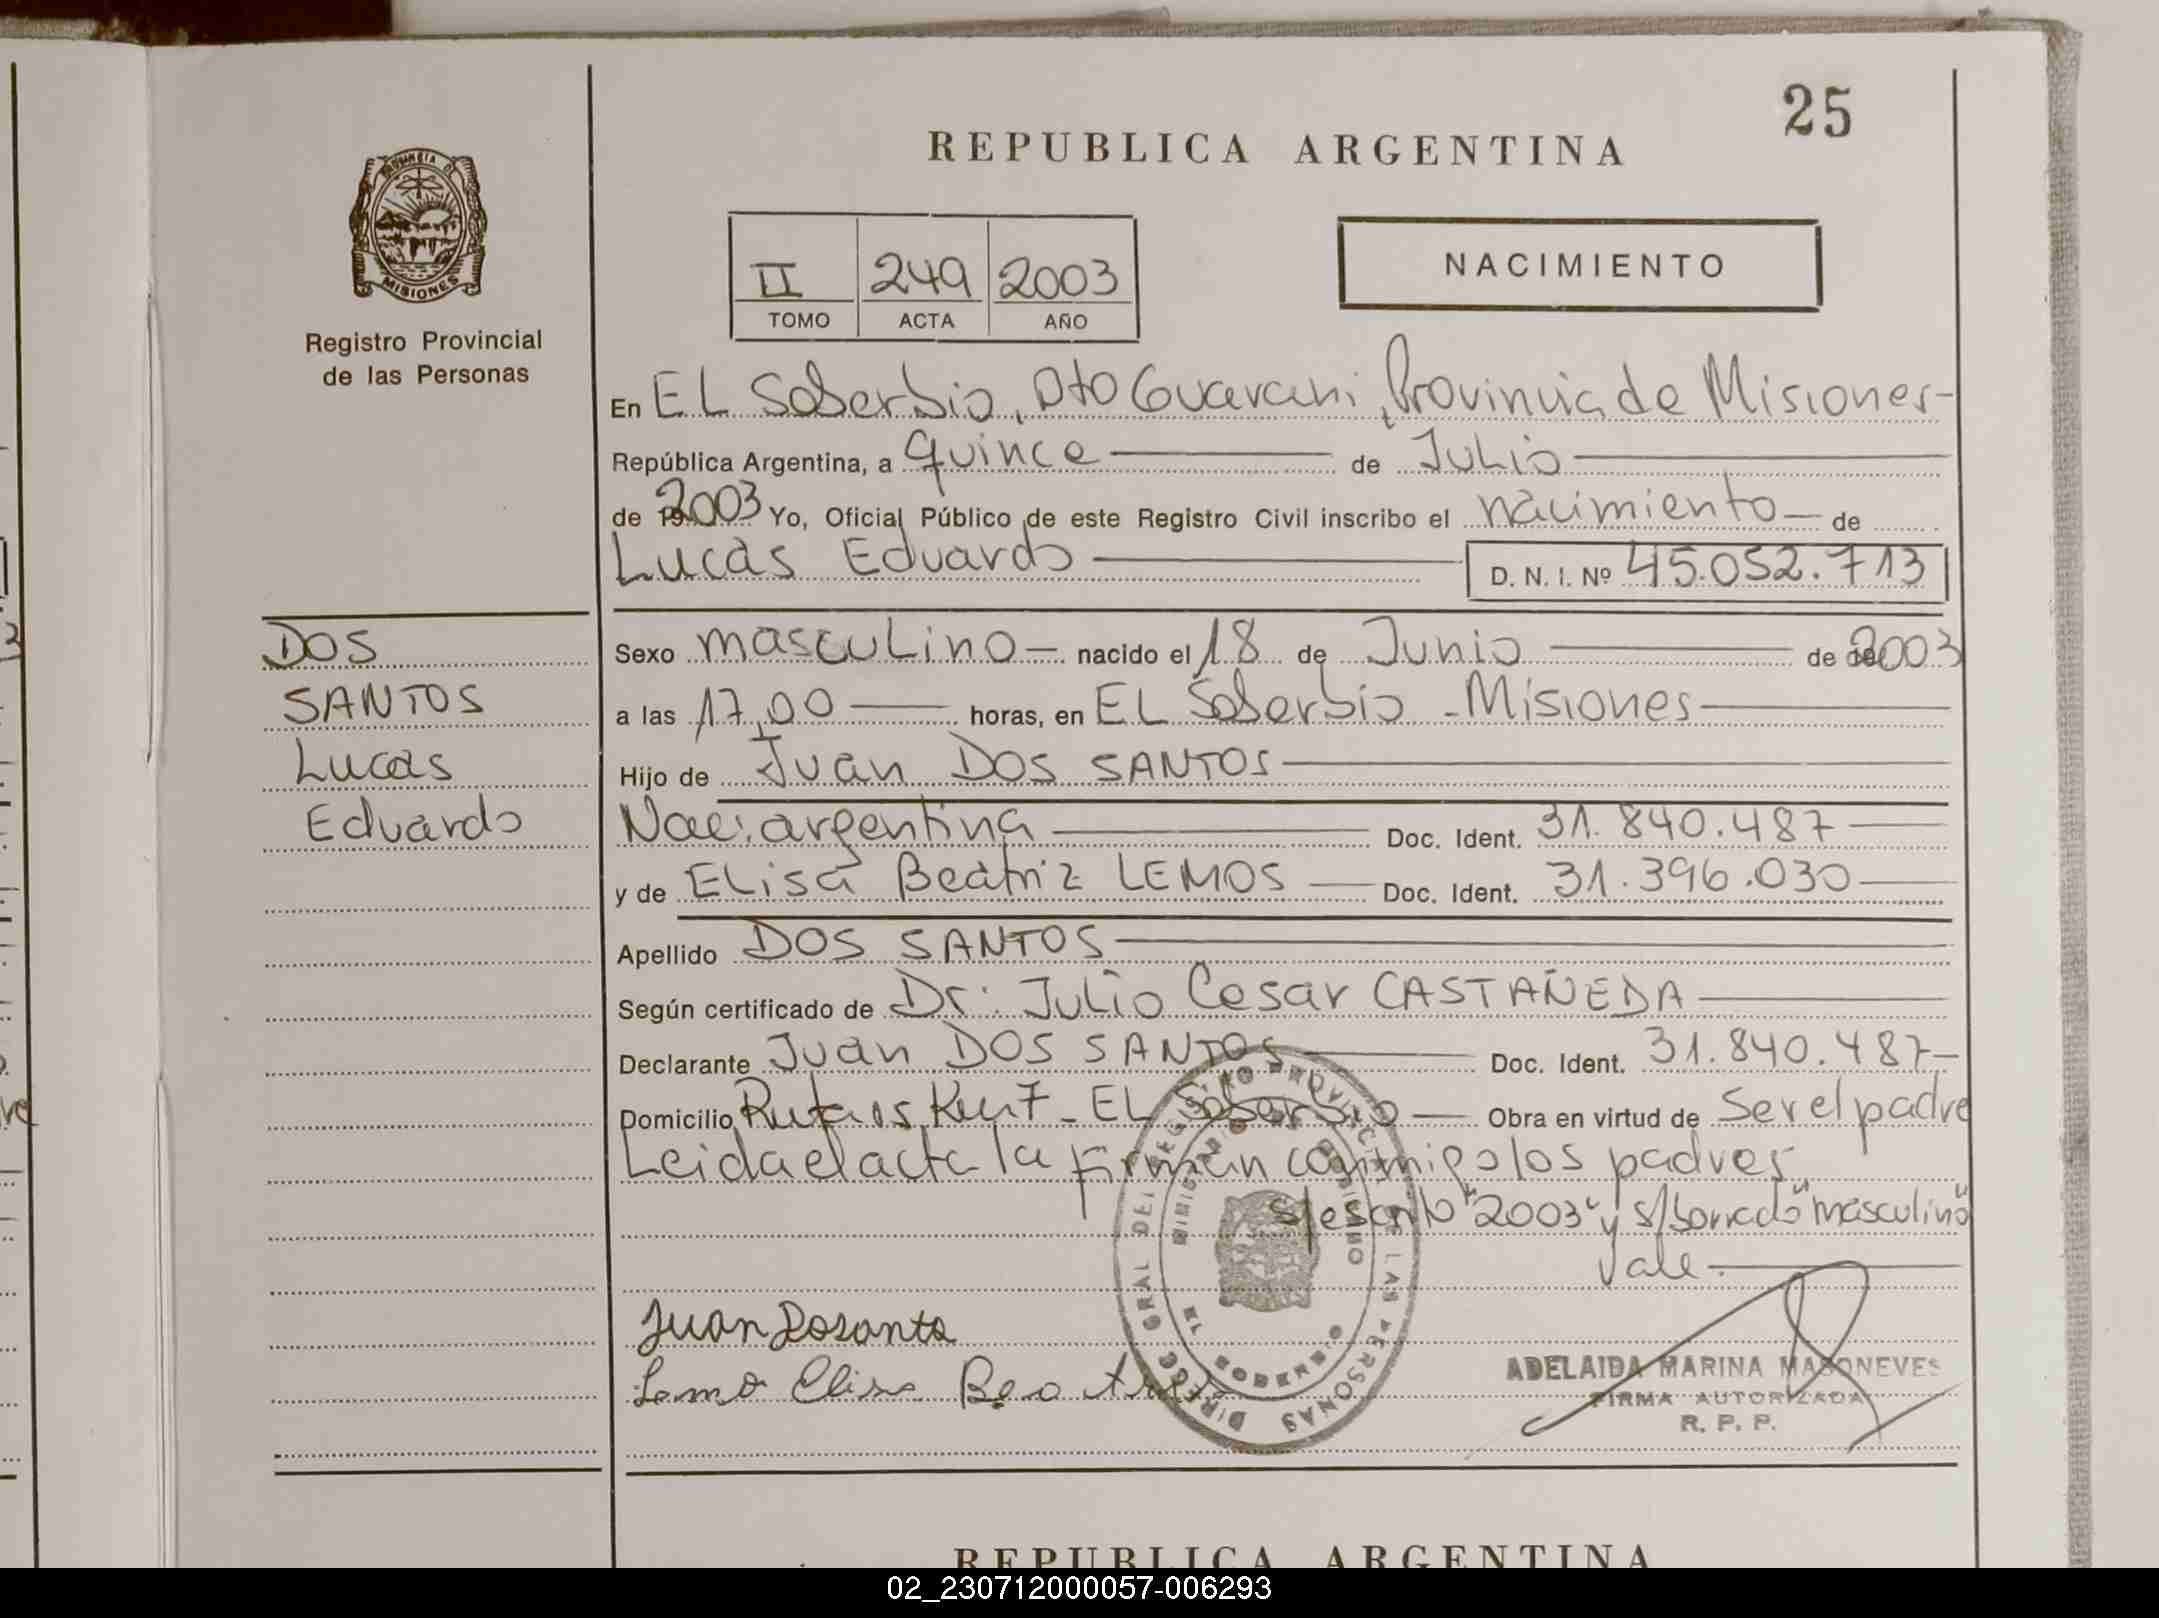 25
REPUBLICA ARGENTINA
PROVINCIA DE
MISIONES
Registro Provincial
de las Personas
NACIMIENTO
II 249 2003
TOMO ACTA AÑO
En EL Soberbio, Dto Guarani, Provincia de Misiones-
República Argentina, a quince de Julio
de 2003 Yo, Oficial Público de este Registro Civil inscribo el nacimiento de
Lucas Eduardo D. N. I. Nº 45.052.713
DOS
SANTOS
Lucas
Eduardo
Sexo masculino nacido el 18 de Junio de 2003
a las 17,00 horas, en EL Soberbio - Misiones
Hijo de Juan DOS SANTOS
Nac. argentina Doc. Ident. 31.840.487
y de ELisa Beatriz LEMOS Doc. Ident. 31.396.030
Apellido DOS SANTOS
Según certificado de Dr. Julio Cesar CASTAÑEDA
Declarante Juan DOS SANTOS Doc. Ident. 31.840.487-
Domicilio Ruta Km 7 - EL Soberbio Obra en virtud de Ser el padre
Leida el acta la firman conmigo los padres
s/escrito "2003" y s/borrado "masculino"
Vale.
Juan Dosanto
Lemo Elisa
DIREC. GRAL DEL REGISTRO PROVINCIAL DE LAS PERSONAS
MINISTERIO DE GOBIERNO
ADELAIDA MARINA MASONEVES
FIRMA AUTORIZADA
R. P. P.
REPUBLICA ARGENTINA
02_230712000057-006293